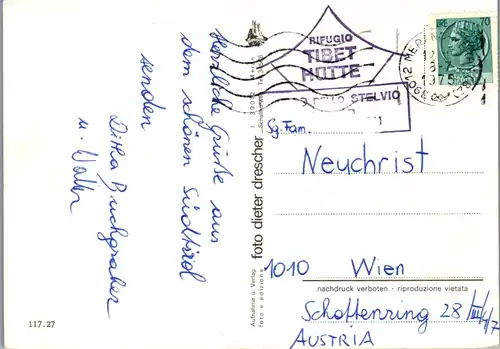 Herzliche Grüße aus
dem schönen Südtirol
senden
Ditha Buchgraber
u. Walter
117.27
Aufnahme u. Verlag
foto e edizione
foto dieter drescher
RIFUGIO
TIBET
HÜTTE
STELVIO
39012 MER
1975
70
Sg. Fam.
Neuchrist
1010 Wien
nachdruck verboten - riproduzione vietata
Schottenring 28/III/4/7
AUSTRIA